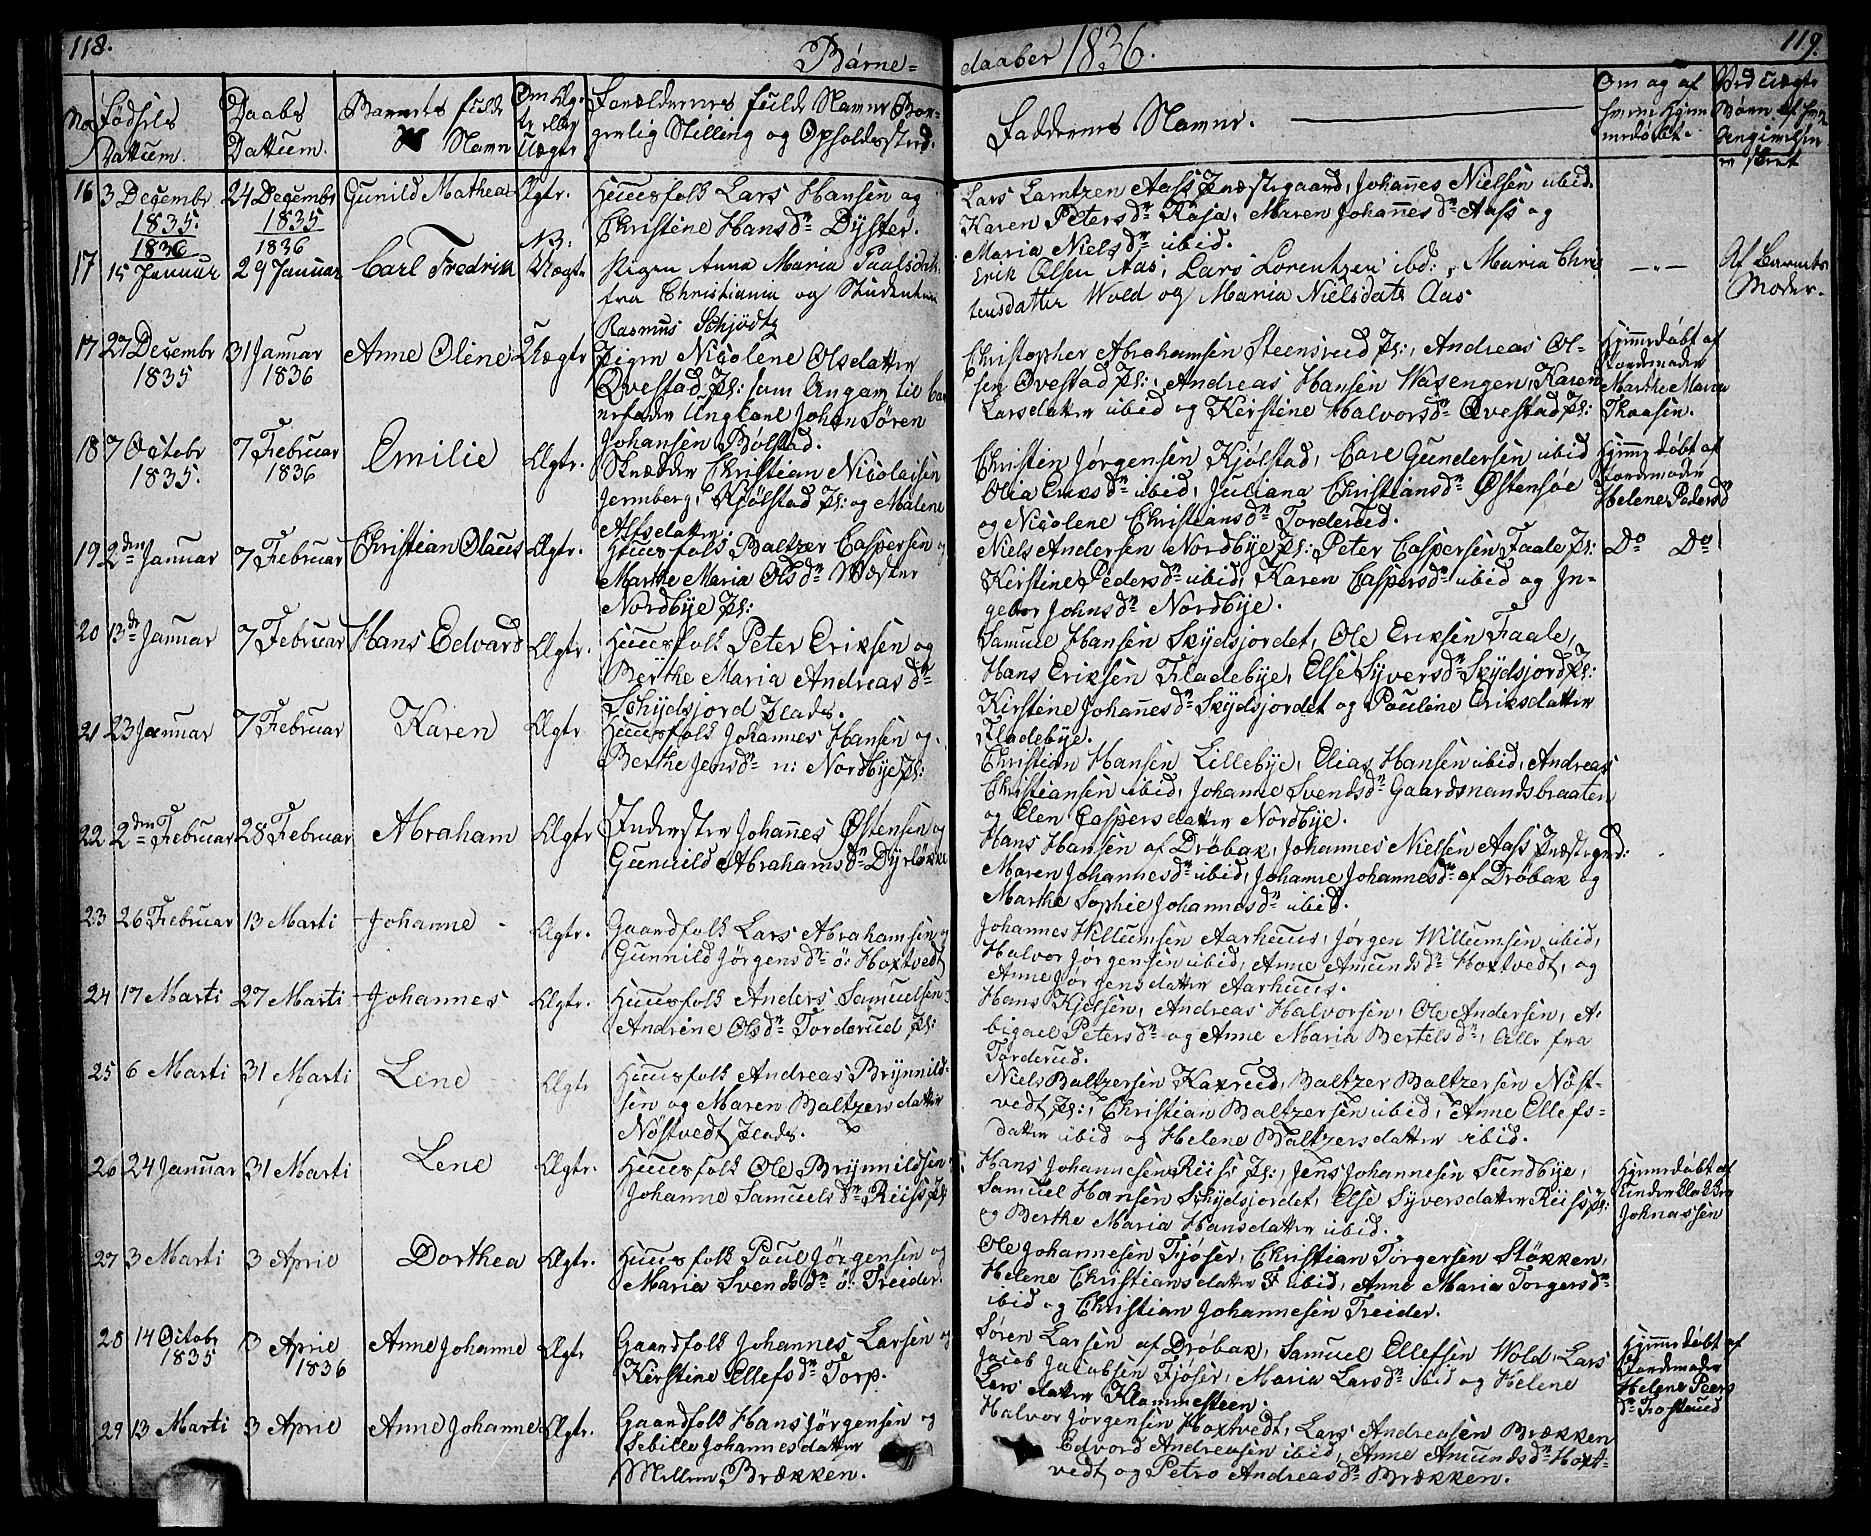 118.
Børne-
daaber 1836.
119.
No
Fødsels Dattum.
Daabs Dattum.
Barnets fulde Navn
Om Ægte eller Uægte
Forældrernes fulde Navne Borgerlig Stilling og Opholdssted.
Faddernes Navne.
Om og af hvem hjemmedøbt.
Ved Uægte Børn af hvem Angivelsen er skeet
16 3 Decembr 1835. 24 Decembr 1835 Gunild Mathea Ægte.
Huusfolk Lars Hansen og
Christine Hansdr Dyster.
Lars Larntzen Aass Præstegaard, Johannes Nielsen ubid.
Karen Petersdr Kaja, Maren Johannesdr Aass og
Maria Nielsdr ibid.
1836
1836
NB:
17 15 Januar 29 Januar Carl Fredrik Uægte
Pigen Anna Maria Paalsdatt.
fra Christiania og Studenten
Rasmus Schjødtz
Erik Olsen Aas, Lars Lorentzen ibd:, Maria Chris
tensdatter Wold og Maria Nielsdatr Aas
—"—
Af Barnets Moder.
17 27 Decembr 1835 31 Januar 1836 Anne Olene Uægte
Pigen Nicolene Olsdatter
Qvestad Pl: som Angav til Bar
nefader Ungkarl Johan Søren
Johansen Bølstad.
Christopher Abrahamsen Steensrud Pl:, Andreas Ol-
sen Qvestad Pl:, Andreas Hansen Wasengen, Karen
Larsdatter ubid og Kirstine Halvorsdr Qvestad Pl:
Hjemedøbt af Jordemoder Marthe Maria Thoresen.
18 7 Octobr 1835. 7 Februar 1836 Emilie Ægte.
Skrædder Christian Nicolaisen
Jernberg, Kjølstad Pl: og Malene
Alfsdatter.
Christen Jørgensen Kjølstad, Carl Gundersen ubid
Olia Eriksdr ubid, Juliana Christiansdr Østensøe
og Nicolene Christiansdr Torderud.
Hjemedøbt af Jordemoder Helene Pedersdr
19 2den Januar 7 Februar Christian Olaus Ægte.
Huusfolk Baltzer Caspersen og
Marthe Maria Olsdr Wæster
Nordbye Pl:
Niels Andersen Nordbye Pl: Peter Caspersen Faale Pl:
Kirstine Pedersdr ubid, Karen Caspersdr ubid og In-
gebor Johnsdr Nordbye.
Do Do
20 13de Januar 7 Februar Hans Edvard Ægte.
Huusfolk Peter Eriksen og
Berthe Maria Andreasdr
Schydsjord Plads.
Samuel Hansen Skydsjordet, Ole Eriksen Faale,
Hans Eriksen Fladebye, Else Syversdr Skydsjord Pl:
Kirstine Johannesdr Skydsjordet og Pauline Eriksdatter
Fladebye.
21 23 Januar 7 Februar Karen Ægte
Huusfolk Johannes Hansen og
Berthe Jensdr n: Nordbye Pl:
Christian Hansen Lillebye, Elias Hansen ubid, Andreas
Christiansen ubid, Johanne Svendsdr Gaardsmandsbraaten
og Elen Caspersdatter Nordbye.
22 2den Februar 28 Februar Abraham Ægte
Inderster Johannes Østensen og
Gunnild Abrahamsdr Dyrløkke
Hans Hansen af Drøbak, Johannes Nielsen Aass Præstegrd:
Maren Johannesdr ubid, Johanne Johannesdr af Drøbak og
Marthe Sophie Johannesdr ubid.
23 26 Februar 13 Marti Johanne Ægte.
Gaardfolk Lars Abrahamsen og
Gunnild Jørgensdr ö: Hoxtvedt
Johannes Willumsen Aarhuus, Jørgen Willumsen ubid,
Halvor Jørgensen ubid, Anne Amundsdr Hoxtvedt, og
Anne Jørgensdatter Aarhuus.
24 17 Marti 27 Marti Johannes Ægte.
Huusfolk Anders Samuelsen
Andrine Olsdr Torderud Pl:
Hans Kjelsen, Andreas Halvorsen, Ole Andersen, A-
bigael Petersdr og Anne Maria Bertelsdr, Alle fra
Torderud.
25 6 Marti 31 Marti Lene Ægte
Huusfolk Andreas Brynnild-
sen og Maren Baltzersdatter
Nøstvedt Plads.
Niels Baltzersen Kaxrud, Baltzer Baltzersen Nøst-
vedt Pl:, Christian Baltzersen ubid, Anne Ellefs-
datter ubid og Helene Baltzersdatter ibid.
26 24 Januar 31 Marti Lene Ægte.
Huusfolk Ole Brynnildsen
Johanne Samuelsdr Reiss Pl:
Hans Johannesen Reiss Pl:, Jens Johannesen Sundbye,
Samuel Hansen Schydsjordet, Else Syversdatter Reiss Pl:
og Berthe Maria Hansdatter ubid.
Hjemedøbt af Johnassen
27 3 Marti 3 April Dorthea Ægte.
Huusfolk Paul Jørgensen og
Maria Svendsdr ö: Treider.
Ole Johannesen Fjøser, Christian Torgersen Støkken,
Helene Christiansdatter ubid, Anne Maria Torgersdr
ibid og Christian Johannesen Treider.
28 14 Octobr 1835 3 April 1836 Anne Johanne Ægte
Gaardfolk Johannes Larsen og
Kirstine Ellefsdr Torp.
Søren Larsen af Drøbak, Samuel Ellefsen Wold, Lars
Jacob Jacobsen Fjøser, Maria Larsdr ibid og Helene
Larsdatter Klommesteen.
Hjemedøbt af Jordemoder Helene Peersdr Froserud
29 13 Marti 3 April Anne Johanne Ægte.
Gaardfolk Hans Jørgensen og
Sebille Johannesdatter
Mellem Brækken.
Halvor Jørgensen Hoxtvedt, Lars Andreasen Brækken
Edvord Andreasen ibid, Anne Amundsdr Hoxt-
vedt og Petro Andreasdr Brækken.